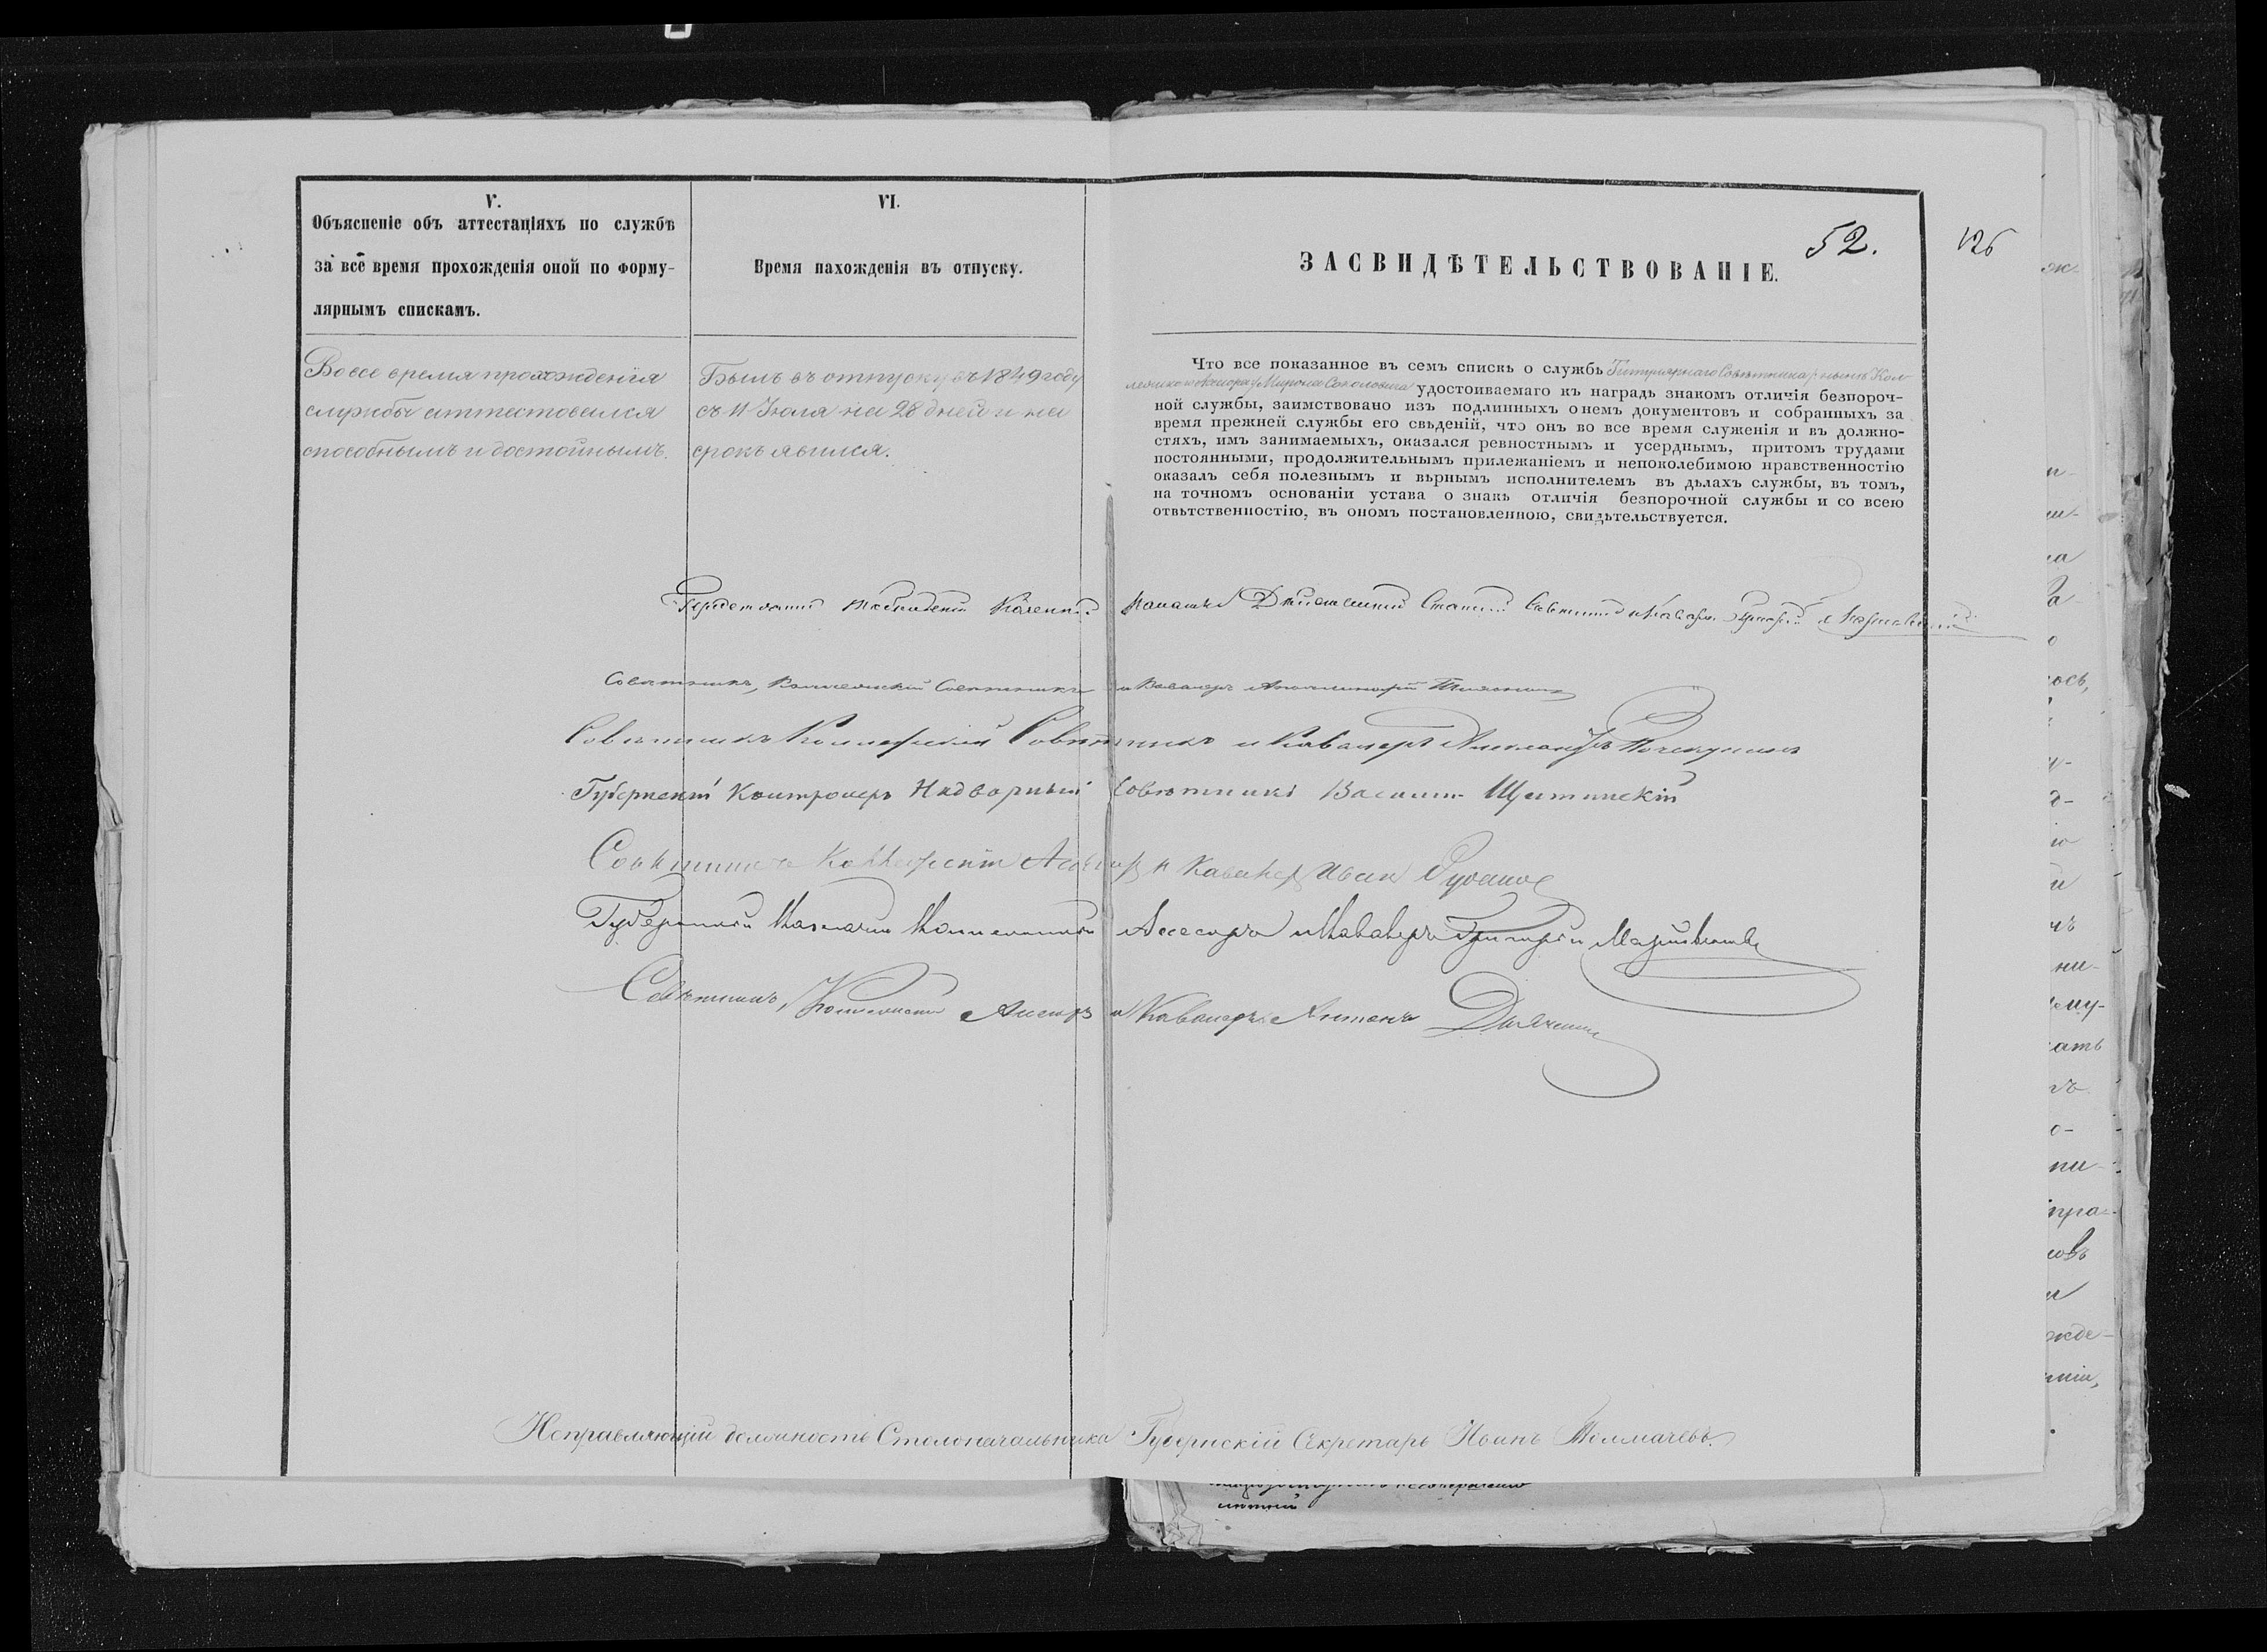 V.
Объясненіе объ аттестаціяхъ по службѣ
за все время прохожденія оной по форму-
лярнымъ спискамъ.
Во все время прохожденія
службы аттестовался
способнымъ и достойнымъ.
VI.
Время нахожденія въ отпуску.
Былъ въ отпуску въ 1849 году
съ 11 Іюля на 28 дней и на
срокъ явился.
52.
126
ЗАСВИДѢТЕЛЬСТВОВАНІЕ.
Что все показанное въ семъ спискѣ о службѣ Титулярнаго Совѣтника, нынѣ Кол-
лежскаго Ассесора Мирона Соколовича удостоиваемаго къ наградѣ знакомъ отличія безпороч-
ной службы, заимствовано изъ подлинныхъ о немъ документовъ и собранныхъ за
время прежней службы его свѣденій, что онъ во все время служенія и въ должно-
стяхъ, имъ занимаемыхъ, оказался ревностнымъ и усерднымъ, притомъ трудами
постоянными, продолжительнымъ прилежаніемъ и непоколебимою нравственностію
оказалъ себя полезнымъ и вѣрнымъ исполнителемъ въ дѣлахъ службы, въ томъ,
на точномъ основаніи устава о знакѣ отличія безпорочной службы и со всею
отвѣтственностію, въ ономъ постановленною, свидѣтельствуется.
Казенной Палаты Дѣйствительный Статскій Совѣтникъ и Кавалеръ
Совѣтникъ, Коллежскій Совѣтникъ и Кавалеръ Аполлинарій
Совѣтникъ Коллежскій Совѣтникъ и Кавалеръ Александръ
Губернскій Контролеръ Надворный Совѣтникъ Василій Щитинскій
Совѣтникъ Коллежскій Асесоръ и Кавалеръ Иванъ
Губернскій Казначей Коллежскій Ассесоръ и Кавалеръ Григорій
Совѣтникъ, Коллежскій Асесоръ и Кавалеръ Антонъ
Исправляющій должность Столоначальника Губернскій Секретарь Иванъ Толмачевъ.